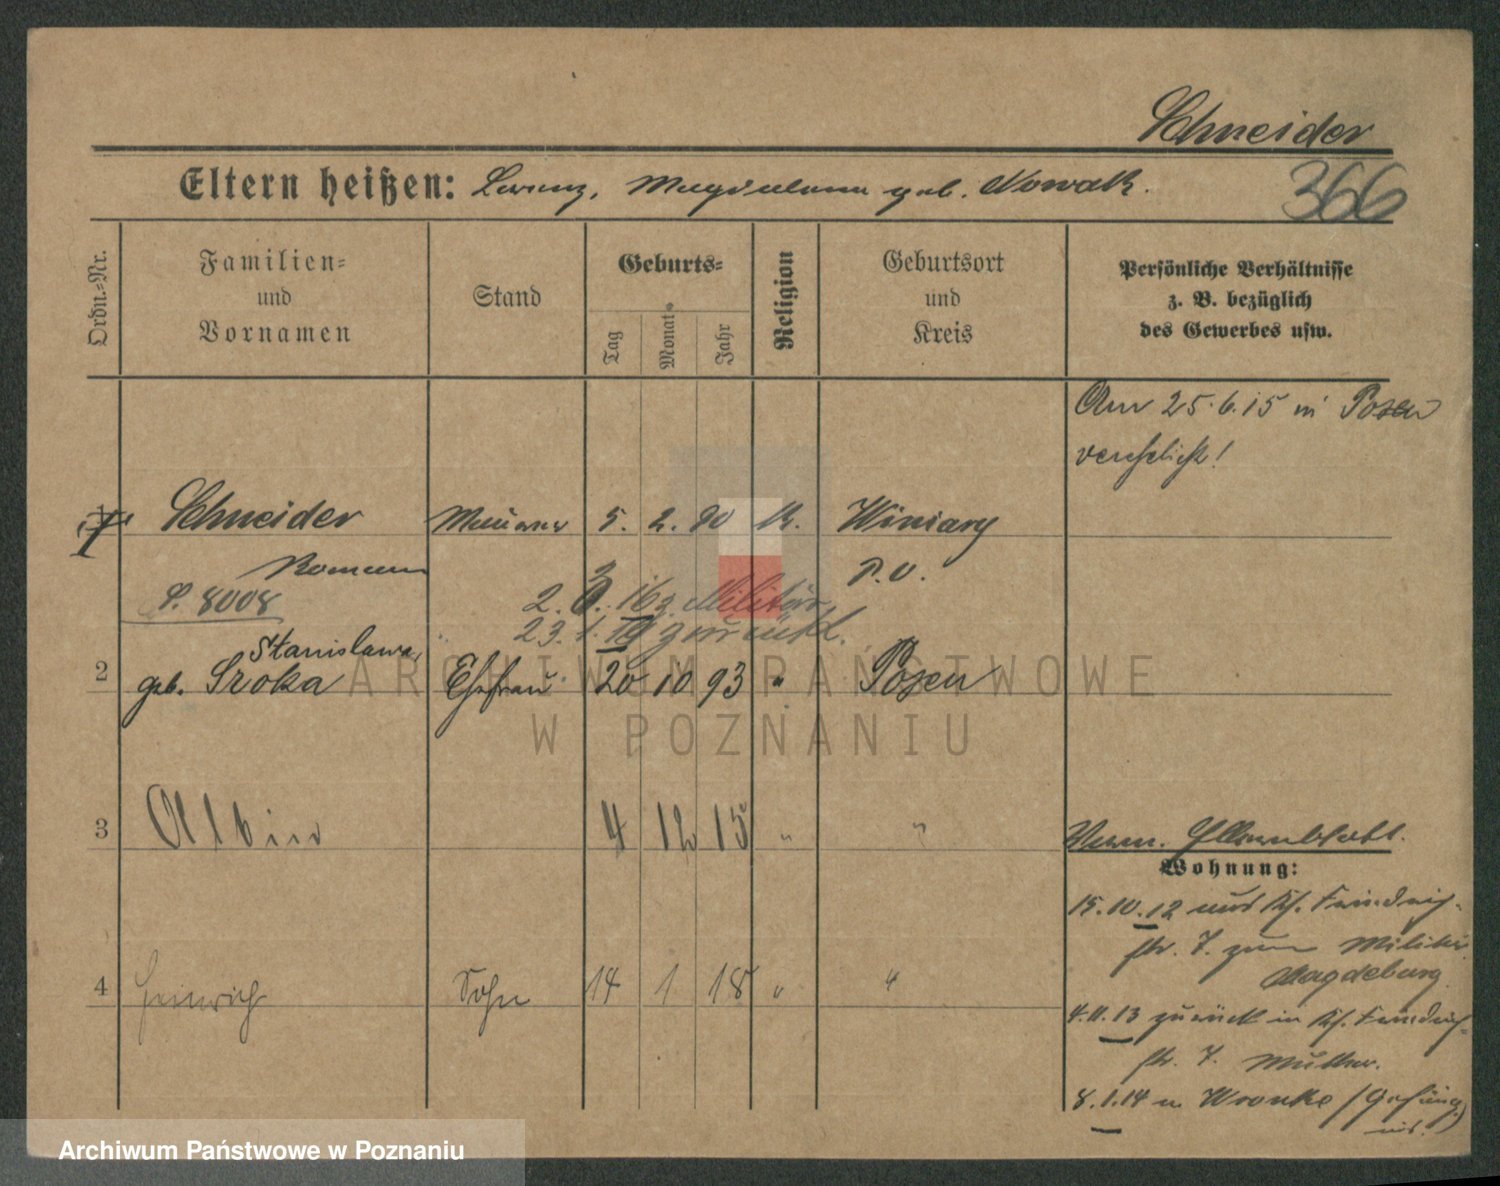 Schneider
Eltern heißen: Lorenz, Magdalena geb. Nowak.
366
Ordn.=Nr.
Familien=
und
Vornamen
Stand
Geburts=
Tag
Monat
Jahr
Religion
Geburtsort
und
Kreis
Persönliche Verhältnisse
z. B. bezüglich
des Gewerbes usw.
Am 25.6.15 in Posen
verehelicht!
1 Schneider Maurer 5. 2. 90 k. Winiary
Roman P. O.
P. 8008 2. 3. 16 z. Militär
23. 1. 19 zurück.
Stanislawa,
2 geb. Sroka Ehefrau 20 10 93 " Posen
3 Albin 4 12 15 " "
Wohnung:
15.10.12 und Kl. Friedrich-
str. 7. zum Militär
Magdeburg
4 Heinrich Sohn 14 1 18 " "
4.11.13 zurück in Kl. Friedrich-
str. 7. Mutter.
8.1.14 n. Wronke (Gefäng
nis.)
ARCHIWUM PAŃSTWOWE
W POZNANIU
Archiwum Państwowe w Poznaniu